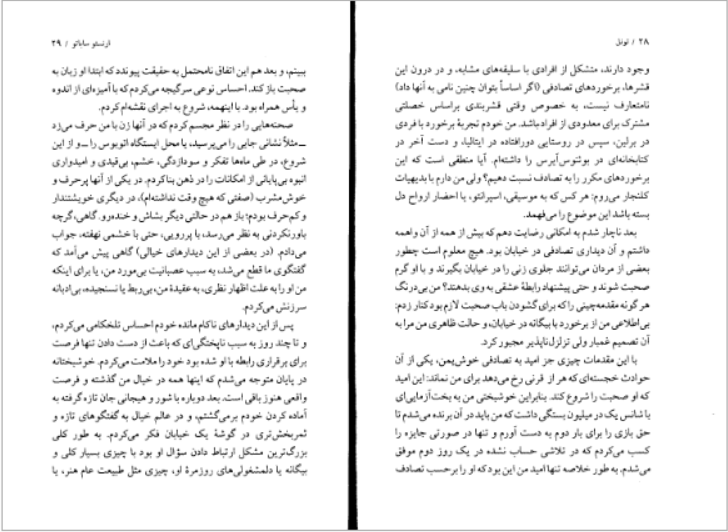 ۲۸ / تونل
وجود دارند، متشکل از افرادی با سلیقه‌های مشابه، و در درون این
قشرها، برخوردهای تصادفی (اگر اساساً بتوان چنین نامی به آنها داد)
نامتعارف نیست، به خصوص وقتی قشربندی براساس خصلتی
مشترک برای معدودی از افراد باشد. من خودم تجربهٔ برخورد با فردی
در برلین، سپس در روستایی دورافتاده در ایتالیا، و دست آخر در
کتابخانه‌ای در بوئنوس‌آیرس را داشته‌ام. آیا منطقی است که این
برخوردهای مکرر را به تصادف نسبت دهیم؟ ولی من دارم با بدیهیات
کلنجار می‌روم: هر کس که به موسیقی، اسپرانتو، یا احضار ارواح دل
بسته باشد این موضوع را می‌فهمد.
بعد ناچار شدم به امکانی رضایت دهم که بیش از همه از آن واهمه
داشتم و آن دیداری تصادفی در خیابان بود. هیچ معلوم است چطور
بعضی از مردان می‌توانند جلوی زنی را در خیابان بگیرند و با او گرم
صحبت شوند و حتی پیشنهاد رابطهٔ عشقی به وی بدهند؟ من بی‌درنگ
هر گونه مقدمه‌چینی را که برای گشودن باب صحبت لازم بود کنار زدم:
بی‌اطلاعی من از برخورد با بیگانه در خیابان، و حالت ظاهری من مرا به
آن تصمیم غمبار ولی تزلزل‌ناپذیر مجبور کرد.
با این مقدمات چیزی جز امید به تصادفی خوش‌یمن، یکی از آن
حوادث خجسته‌ای که هر از قرنی رخ می‌دهد برای من نماند: این امید
که او صحبت را شروع کند. بنابراین خوشبختی من به بخت‌آزمایی‌ای
با شانس یک در میلیون بستگی داشت که من باید در آن برنده می‌شدم تا
حق بازی را برای بار دوم به دست آورم و تنها در صورتی جایزه را
کسب می‌کردم که در تلاشی حساب نشده در یک روز دوم موفق
می‌شدم. به طور خلاصه تنها امید من این بود که او را برحسب تصادف
ارنستو ساباتو / ۲۹
ببینم، و بعد هم این اتفاق نامحتمل به حقیقت پیوندد که ابتدا او زبان به
صحبت باز کند. احساس نوعی سرگیجه می‌کردم که با آمیزه‌ای از اندوه
و یأس همراه بود. با اینهمه، شروع به اجرای نقشه‌ام کردم.
صحنه‌هایی را در نظر مجسم کردم که در آنها زن با من حرف می‌زد
ــ مثلاً نشانی جایی را می‌پرسید، یا محل ایستگاه اتوبوس را ــ و از این
شروع، در طی ماه‌ها تفکر و سودازدگی، خشم، بی‌قیدی و امیدواری
انبوه بی‌پایانی از امکانات را در ذهن بنا کردم. در یکی از آنها پرحرف و
خوش‌مشرب (صفتی که هیچ وقت نداشته‌ام)، در دیگری خویشتندار
و کم‌حرف بودم؛ باز هم در حالتی دیگر بشاش و خنده‌رو. گاهی، گرچه
باورنکردنی به نظر می‌رسد، با پررویی، حتی با خشمی نهفته، جواب
می‌دادم. (در بعضی از این دیدارهای خیالی) گاهی پیش می‌آمد که
گفتگوی ما قطع می‌شد، به سبب عصبانیت بی‌مورد من، یا برای اینکه
من او را به علت اظهار نظری، به عقیدهٔ من، بی‌ربط یا نسنجیده، بی‌ادبانه
سرزنش می‌کردم.
پس از این دیدارهای ناکام مانده خودم احساس تلخکامی می‌کردم،
و تا چند روز به سبب ناپختگی‌ای که باعث از دست دادن تنها فرصت
برای برقراری رابطه با او شده بود خود را ملامت می‌کردم. خوشبختانه
در پایان متوجه می‌شدم که اینها همه در خیال من گذشته و فرصت
واقعی هنوز باقی است. بعد دوباره با شور و هیجانی جان تازه گرفته به
آماده کردن خودم برمی‌گشتم، و در عالم خیال به گفتگوهای تازه و
ثمربخش‌تری در گوشهٔ یک خیابان فکر می‌کردم. به طور کلی
بزرگ‌ترین مشکل ارتباط دادن سؤال او بود با چیزی بسیار کلی و
بیگانه با دلمشغولی‌های روزمرهٔ او، چیزی مثل طبیعت عام هنر، یا